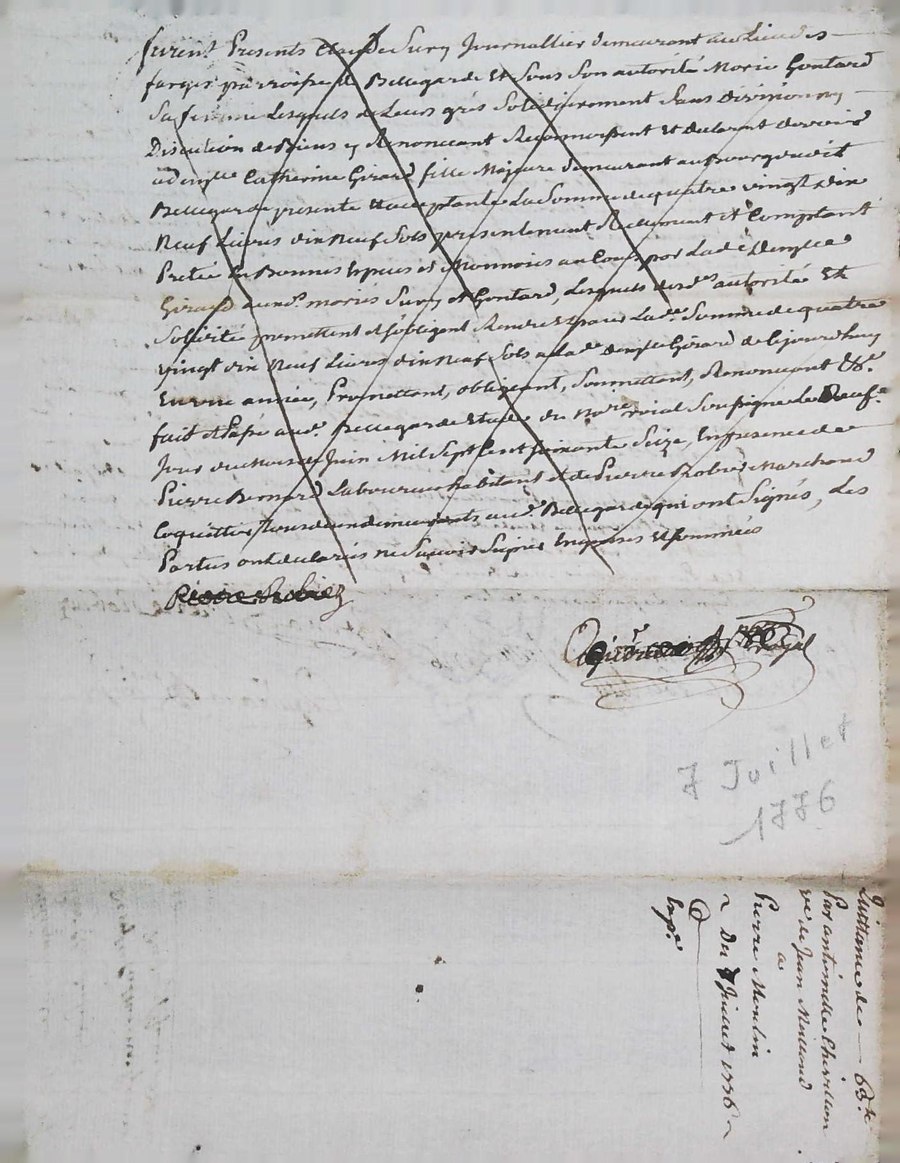 furent Presents Claude Sury Journallier demeurant au Lieu des
farges parroisse de Bellegarde Et Sous Son autorité Marie Gontard
Sa femme Lesquels de Leurs grés Solidairement Sans Division ny
Discution de Biens y Renoncant Reconnoissent Et declarent devoir
a demlle Catherine Girard fille Majeure demeurant au Bourg
Bellegarde presente et acceptante La Somme de quatre vingt dix
Neuf Livres dix Neuf Sols presentement Reellement et Comptant
Pretée En Bonnes Especes et Monnoies au Cours par Lade Demlle
Girard auxds mariés Sury et Gontard, Lesquels desds autorité Et
Solidité promettent et s'obligent Rendre et payer Lade Somme de quatre
vingt dix Neuf Livres dix Neuf Sols a Lade demlle Girard de Cejourdhuy
En une année, Promettant, obligeant, Soumettant, Renoncant &c.
fait et Passé aud. Bellegarde Etude du Nore roial Soussigné Le Neufe
Jour du Mois de Juin Mil Sept Cent Soixante Seize, En presence de
Pierre Bernard Laboureur habitant et de Pierre Robier Marchand
Coquettier tous deux demeurants aud Bellegarde qui ont Signés, Les
Parties ont declarés ne Scavoir Signer Enquises Et Sommées
Pierre Robier
Royal
7 Juillet
1776
Quittance de — 63 tt
Par antoinette Chevillon
ve de Jean
a
Pierre Moulin
Du 7 Juillet 1776
Expe